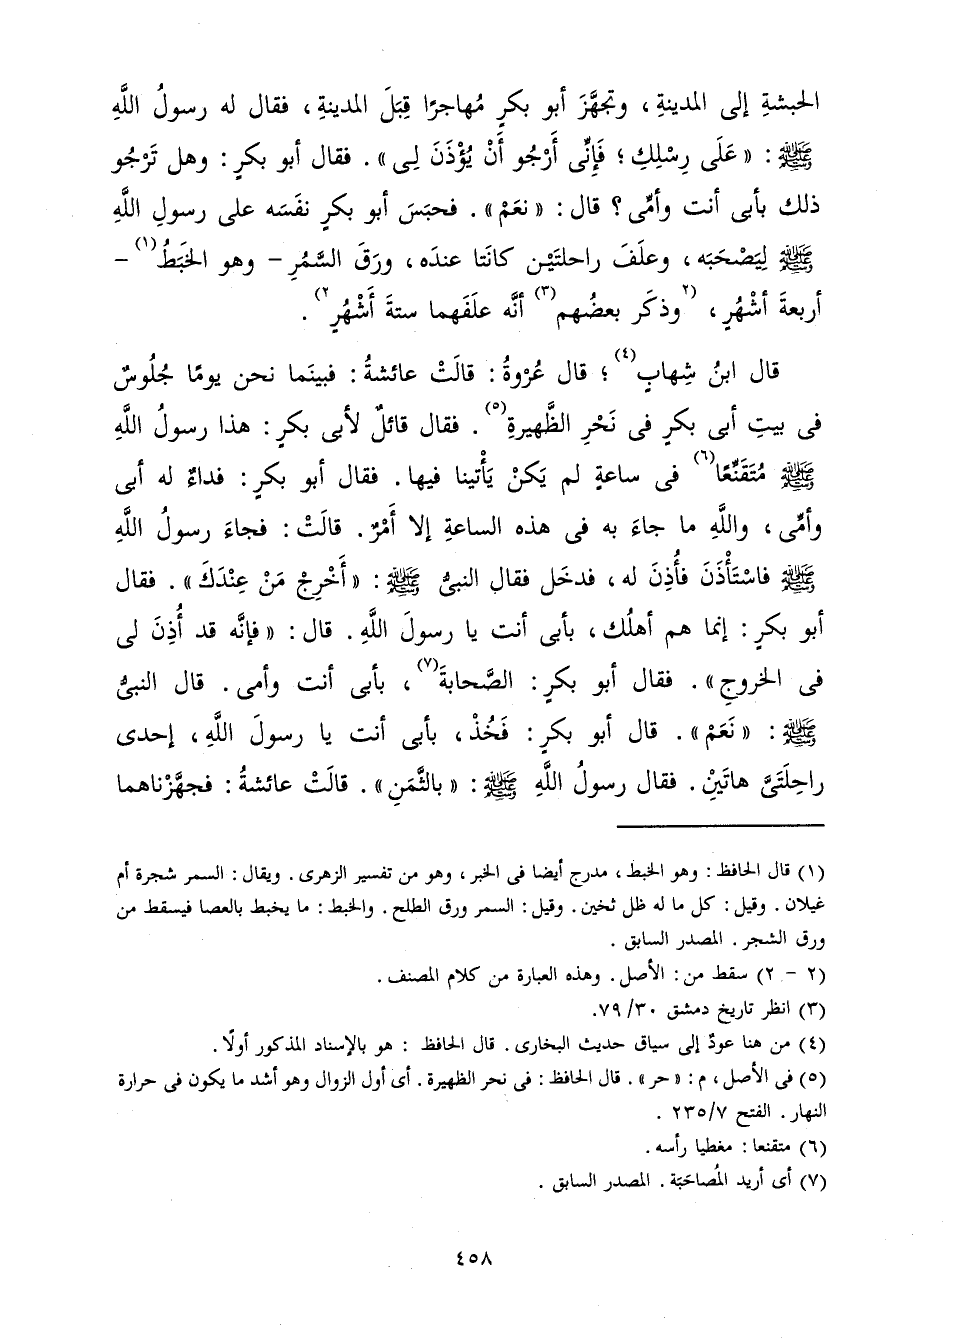 الحبشةِ إلى المدينةِ ، وتجهَّزَ أبو بكرٍ مُهاجرًا قِبَلَ المدينةِ ، فقال له رسولُ اللَّهِ
ﷺ : « عَلَى رِسْلِكِ ؛ فَإِنِّى أَرْجُو أَنْ يُؤْذَنَ لِى » . فقال أبو بكرٍ : وهل تَرْجُو
ذلك بأبى أنت وأمِّى ؟ قال : « نعَمْ » . فحبَسَ أبو بكرٍ نفَسَه على رسولِ اللَّهِ
ﷺ لِيَصْحَبَه ، وعلَفَ راحلتَيْن كانَتا عندَه ، ورَقَ السَّمُرِ – وهو الخَبَطُ(١) –
أربعةَ أشْهُرٍ ، (٢وذكَر بعضُهم(٣) أنَّه علَفَهما ستةَ أَشْهُرٍ٢) .
قال ابنُ شِهابٍ(٤) ؛ قال عُرْوةُ : قالَتْ عائشةُ : فبينَما نحن يومًا جُلُوسٌ
فى بيتِ أبى بكرٍ فى نَحْرِ الظَّهيرةِ(٥) . فقال قائلٌ لأبى بكرٍ : هذا رسولُ اللَّهِ
ﷺ مُتَقَنِّعًا(٦) فى ساعةٍ لم يَكنْ يَأْتينا فيها . فقال أبو بكرٍ : فداءٌ له أبى
وأمِّى ، واللَّهِ ما جاءَ به فى هذه الساعةِ إلا أَمْرٌ . قالَتْ : فجاءَ رسولُ اللَّهِ
ﷺ فاسْتَأْذَنَ فأُذِنَ له ، فدخَل فقال النبىُّ ﷺ : « أَخْرِجْ مَنْ عِنْدَكَ » . فقال
أبو بكرٍ : إنما هم أهلُك ، بأبى أنت يا رسولَ اللَّهِ . قال : « فإنَّه قد أُذِنَ لى
فى الخروجِ » . فقال أبو بكرٍ : الصَّحابةَ(٧) ، بأبى أنت وأمى . قال النبىُّ
ﷺ : « نَعَمْ » . قال أبو بكرٍ : فَخُذْ ، بأبى أنت يا رسولَ اللَّهِ ، إحدى
راحِلَتَىَّ هاتَيْنِ . فقال رسولُ اللَّهِ ﷺ : « بالثَّمَنِ » . قالَتْ عائشةُ : فجهَّزْناهما
(١) قال الحافظ : وهو الخبط ، مدرج أيضا فى الخبر ، وهو من تفسير الزهرى . ويقال : السمر شجرة أم
غيلان . وقيل : كل ما له ظل ثخين . وقيل : السمر ورق الطلح . والخبط : ما يخبط بالعصا فيسقط من
ورق الشجر . المصدر السابق .
(٢ – ٢) سقط من : الأصل . وهذه العبارة من كلام المصنف .
(٣) انظر تاريخ دمشق ٣٠/ ٧٩.
(٤) من هنا عودٌ إلى سياق حديث البخارى . قال الحافظ : هو بالإسناد المذكور أولًا .
(٥) فى الأصل ، م : « حر » . قال الحافظ : فى نحر الظهيرة . أى أول الزوال وهو أشد ما يكون فى حرارة
النهار . الفتح ٢٣٥/٧ .
(٦) متقنعا : مغطيا رأسه .
(٧) أى أريد المُصاحَبَة . المصدر السابق .
٤٥٨